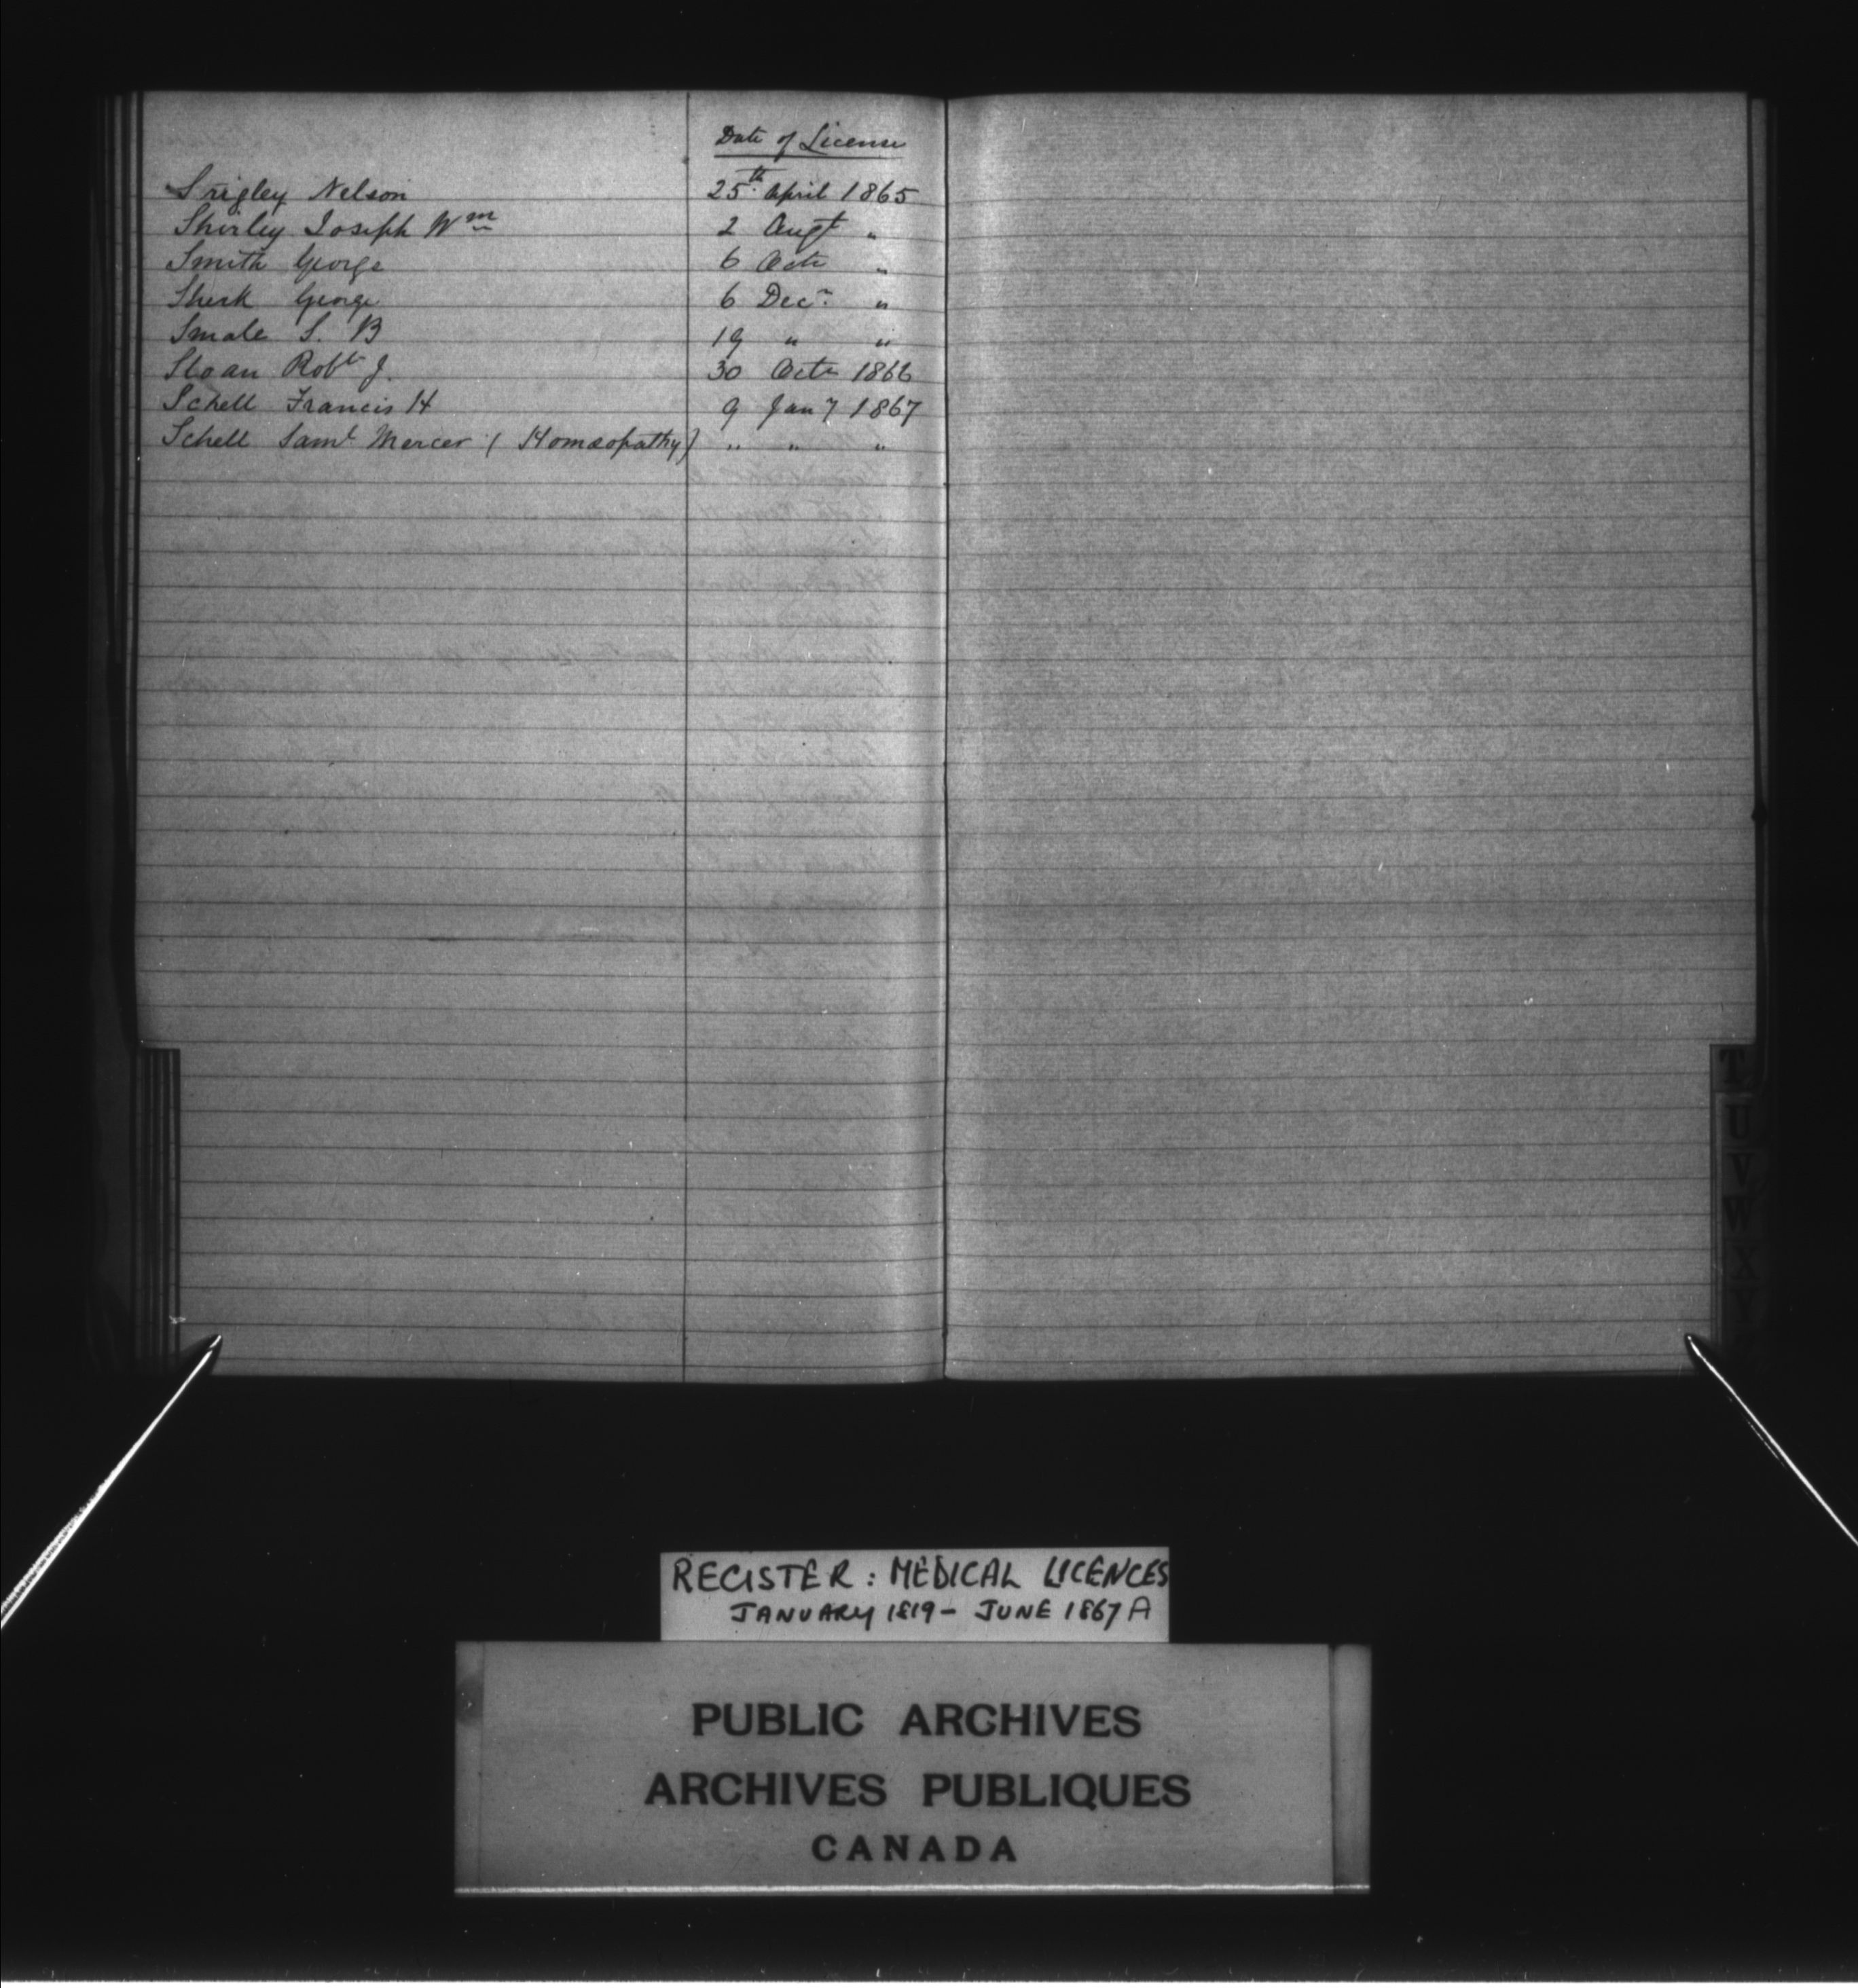 Date of License
Srigley Nelson 25th April 1865
Shirley Joseph Wm 2 Augt "
Smith George 6 Octr "
Sherk George 6 Decr "
Smale S. B 19 " "
Sloan Robt J. 30 Octr 1866
Schell Francis H 9 Jany 1867
Schell Saml Mercer (Homœopathy) " " "
T
U
V
W
X
Y
REGISTER: MEDICAL LICENCES
JANUARY 1819 - JUNE 1867 A
PUBLIC ARCHIVES
ARCHIVES PUBLIQUES
CANADA